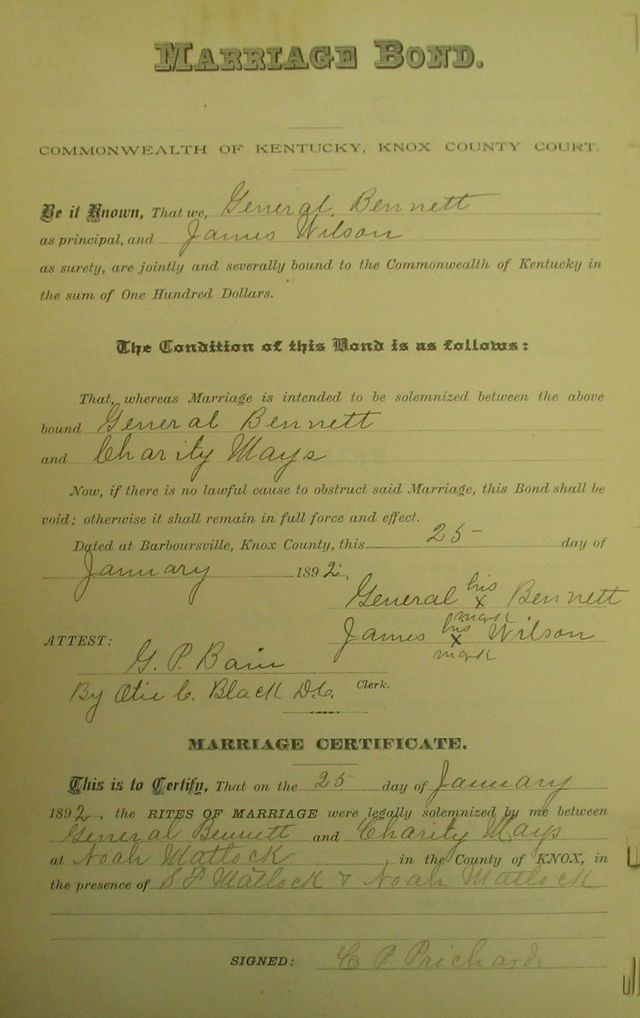 MARRIAGE BOND.
COMMONWEALTH OF KENTUCKY, KNOX COUNTY COURT.
Be it Known, That we, General Bennett
as principal, and James Wilson
as surety, are jointly and severally bound to the Commonwealth of Kentucky in
the sum of One Hundred Dollars.
The Condition of this Bond is as follows:
That, whereas Marriage is intended to be solemnized between the above
bound General Bennett
and Charity Mays
Now, if there is no lawful cause to obstruct said Marriage, this Bond shall be
void; otherwise it shall remain in full force and effect.
Dated at Barboursville, Knox County, this 25 day of
January 1892,
General his x mark Bennett
ATTEST: James his x mark Wilson
G. P. Bain
By Otis C. Black D.C. Clerk.
MARRIAGE CERTIFICATE.
This is to Certify, That on the 25 day of January
1892, the RITES OF MARRIAGE were legally solemnized by me between
General Bennett and Charity Mays
at Noah Matlock, in the County of KNOX, in
the presence of S F Matlock & Noah Matlock
SIGNED: C P Prichard